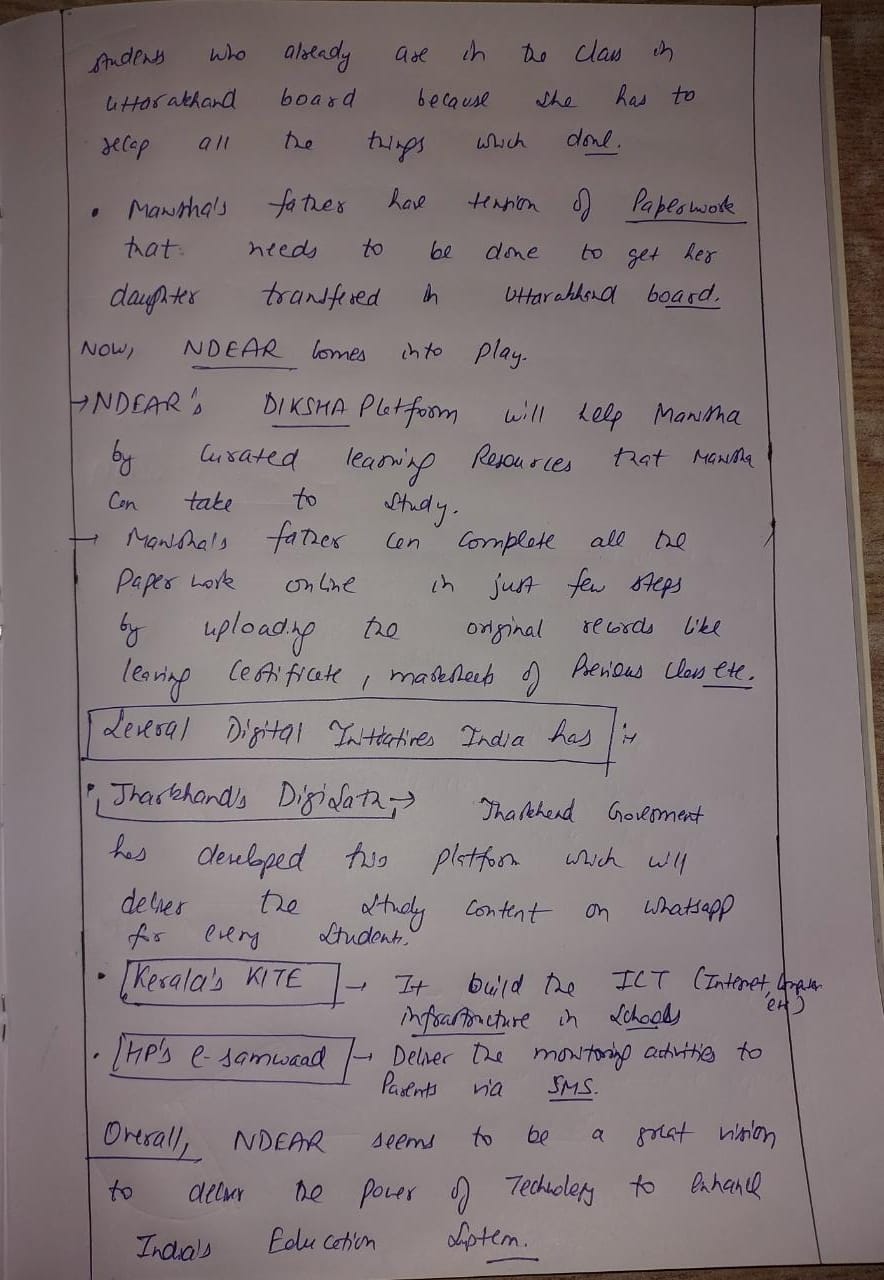 students who already are in the class in
Uttarakhand board because she has to
recap all the things which done.
• Mansha's father have tension of Paperwork
that needs to be done to get her
daughter transfered in Uttarakhand board.
Now, NDEAR comes into play.
→ NDEAR's DIKSHA Platform will help Mansha
by curated learning Resources that Mansha
can take to study.
→ Mansha's father can complete all the
Paper work online in just few steps
by uploading the original records like
leaving Certificate, marksheets of Previous class etc.
Several Digital Initiatives India has :-
• Jharkhand's DigiSath → Jharkhand Goverment
has developed this platform which will
deliver the study content on whatsapp
for every students.
• Kerala's KITE → It build the ICT (Internet, Computer
etc)
infrastructure in Schools
• HP's e-samwaad → Deliver the monitoring activities to
Parents via SMS.
Overall, NDEAR seems to be a great vision
to deliver the power of Technology to enhance
India's Education System.